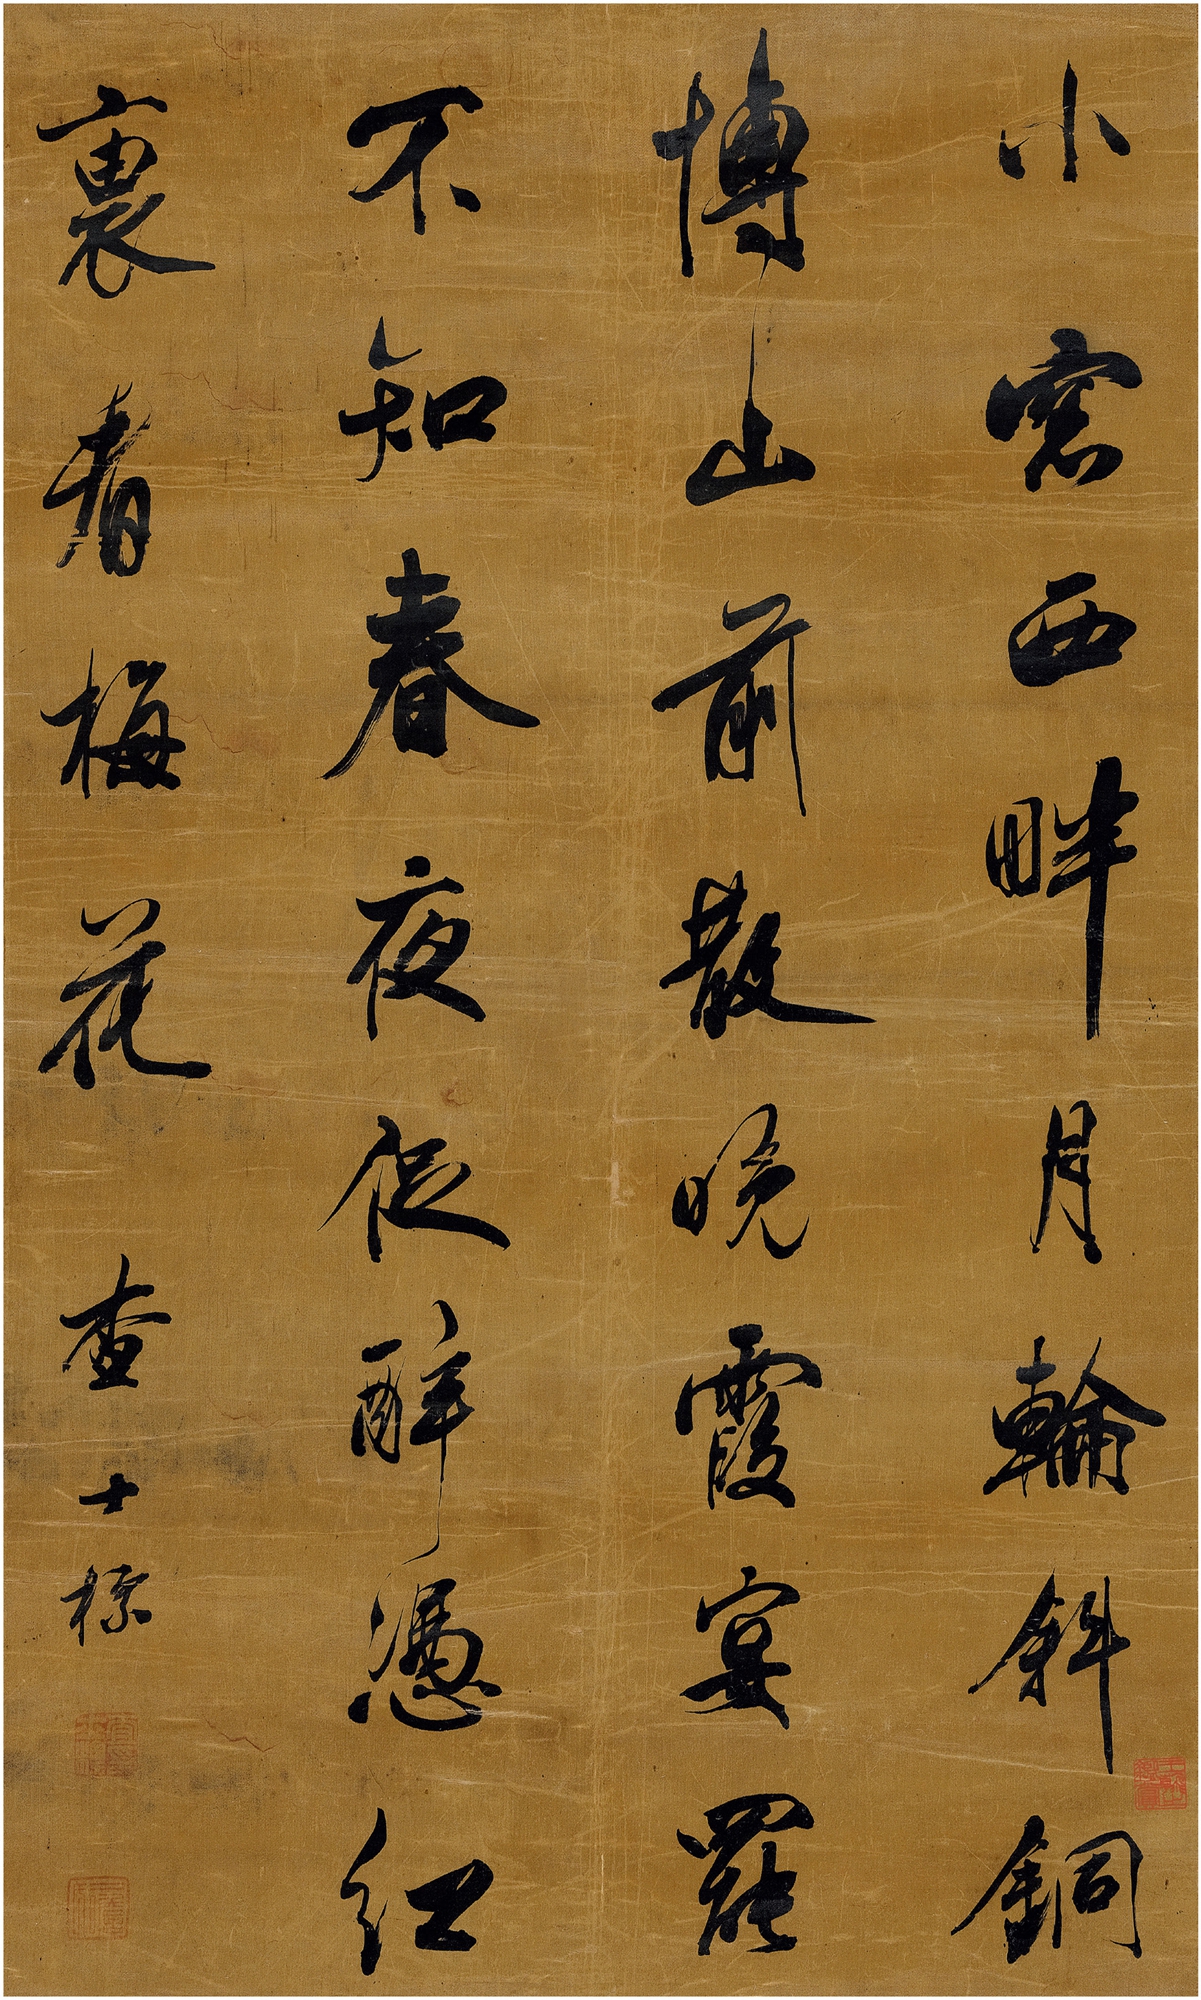 小窓西畔月輪斜銅
博山前散晚霞宴罷
不知春夜促醉憑紅
裏看梅花 查士標